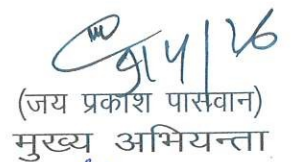 9/4/26
(जय प्रकाश पासवान)
मुख्य अभियन्ता